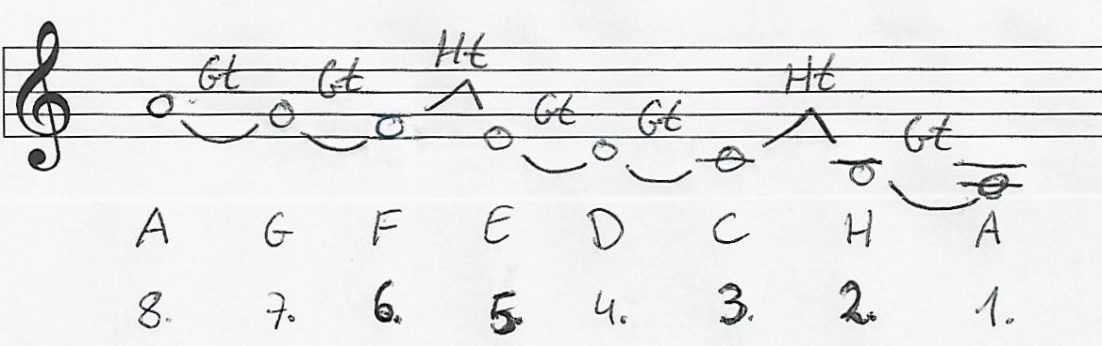 Gt Gt Ht Gt Gt Ht Gt
A G F E D C H A
8. 7. 6. 5. 4. 3. 2. 1.